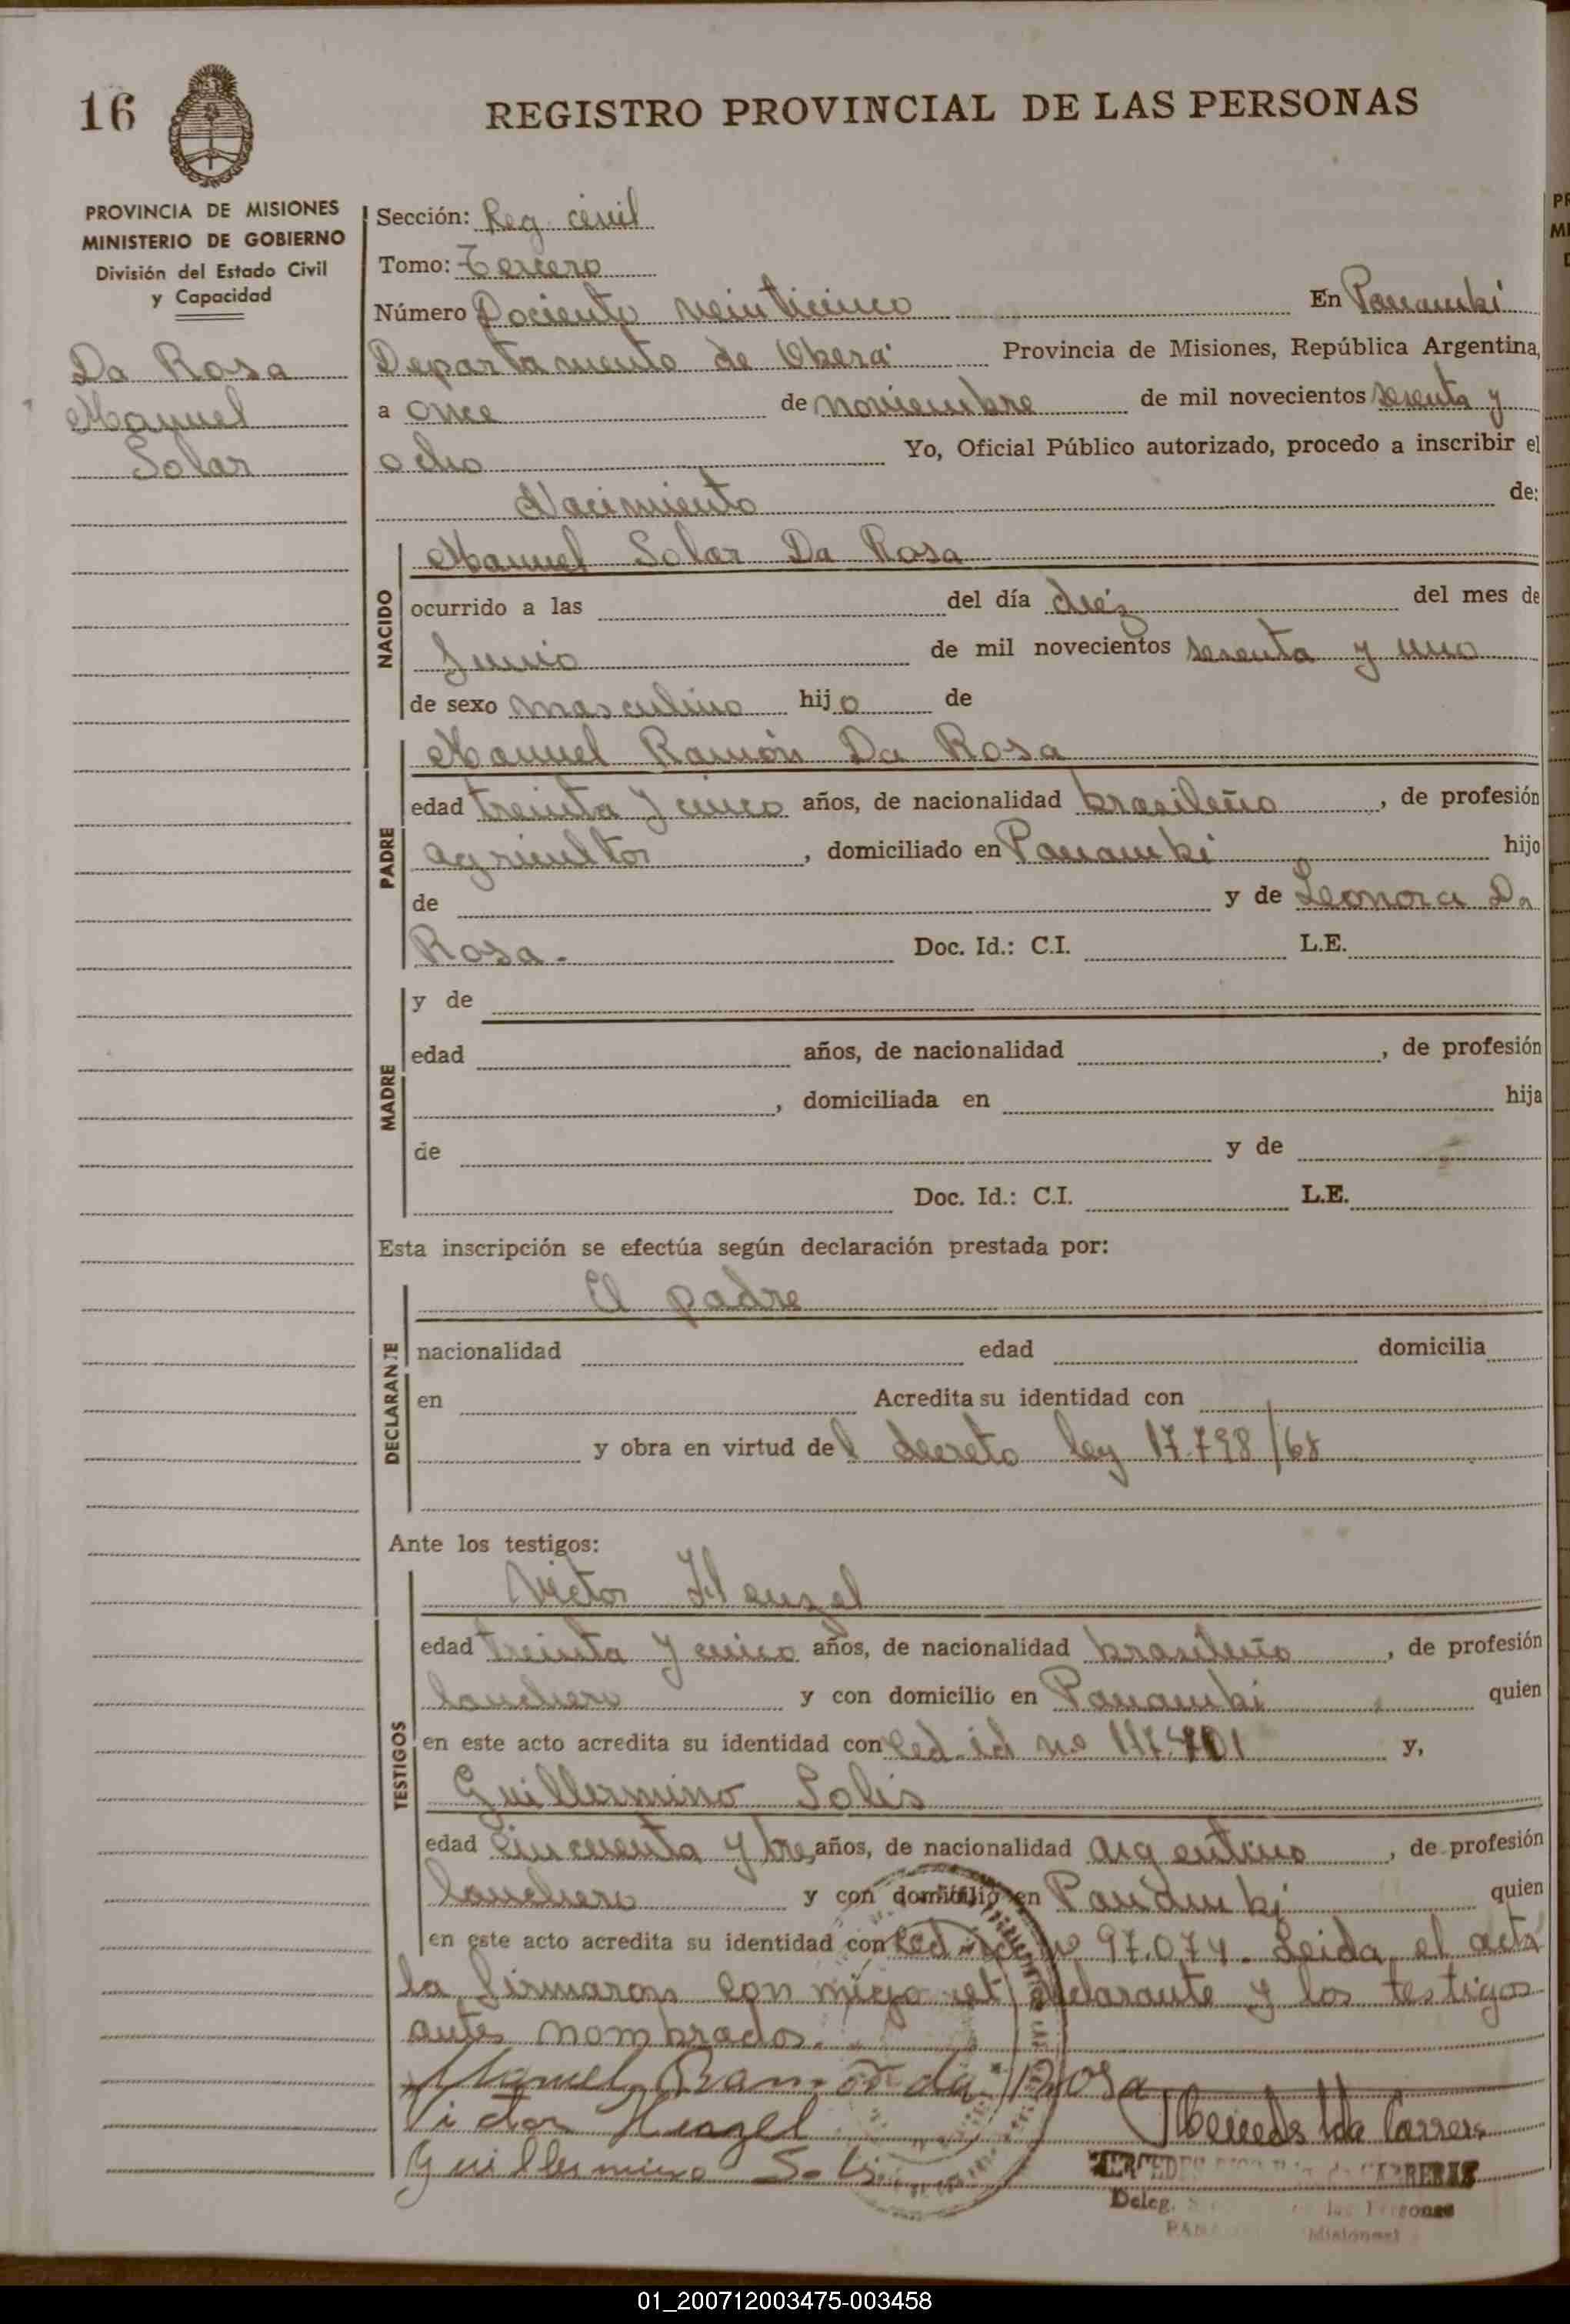 16
REGISTRO PROVINCIAL DE LAS PERSONAS
PROVINCIA DE MISIONES
MINISTERIO DE GOBIERNO
División del Estado Civil
y Capacidad
Da Rosa
Manuel
Solar
Sección: Reg. civil
Tomo: Tercero
Número Dociento veinticinco En Panambí
Departamento de Oberá Provincia de Misiones, República Argentina,
a once de noviembre de mil novecientos sesenta y
ocho Yo, Oficial Público autorizado, procedo a inscribir el
Nacimiento de:
NACIDO
Manuel Solar Da Rosa
ocurrido a las del día diéz del mes de
Junio de mil novecientos sesenta y uno
de sexo masculino hijo de
PADRE
Manuel Ramón Da Rosa
edad treinta y cinco años, de nacionalidad brasileño, de profesión
agricultor, domiciliado en Panambí hijo
de y de Leonora Da
Rosa. Doc. Id.: C.I. L.E.
MADRE
y de
edad años, de nacionalidad , de profesión
, domiciliada en hija
de y de
Doc. Id.: C.I. L.E.
Esta inscripción se efectúa según declaración prestada por:
DECLARANTE
El padre
nacionalidad edad domicilia
en Acredita su identidad con
y obra en virtud del decreto ley 17.798/68
Ante los testigos:
TESTIGOS
Victor Henzel
edad treinta y cinco años, de nacionalidad brasileño, de profesión
lanchero y con domicilio en Panambí quien
en este acto acredita su identidad con Ced. id no 117.701 y,
Guillermino Solis
edad cincuenta y tres años, de nacionalidad argentino, de profesión
lanchero y con domicilio en Panambí quien
en este acto acredita su identidad con Ced. id no 97.074. Leida el acta
la firmaron con migo el declarante y los testigos
antes nombrados.
Manuel Ramon da Rosa
Victor Henzel
Guillermino Solis
MERCEDES CARRERAS
Deleg. de las Personas
Misiones
01_200712003475-003458